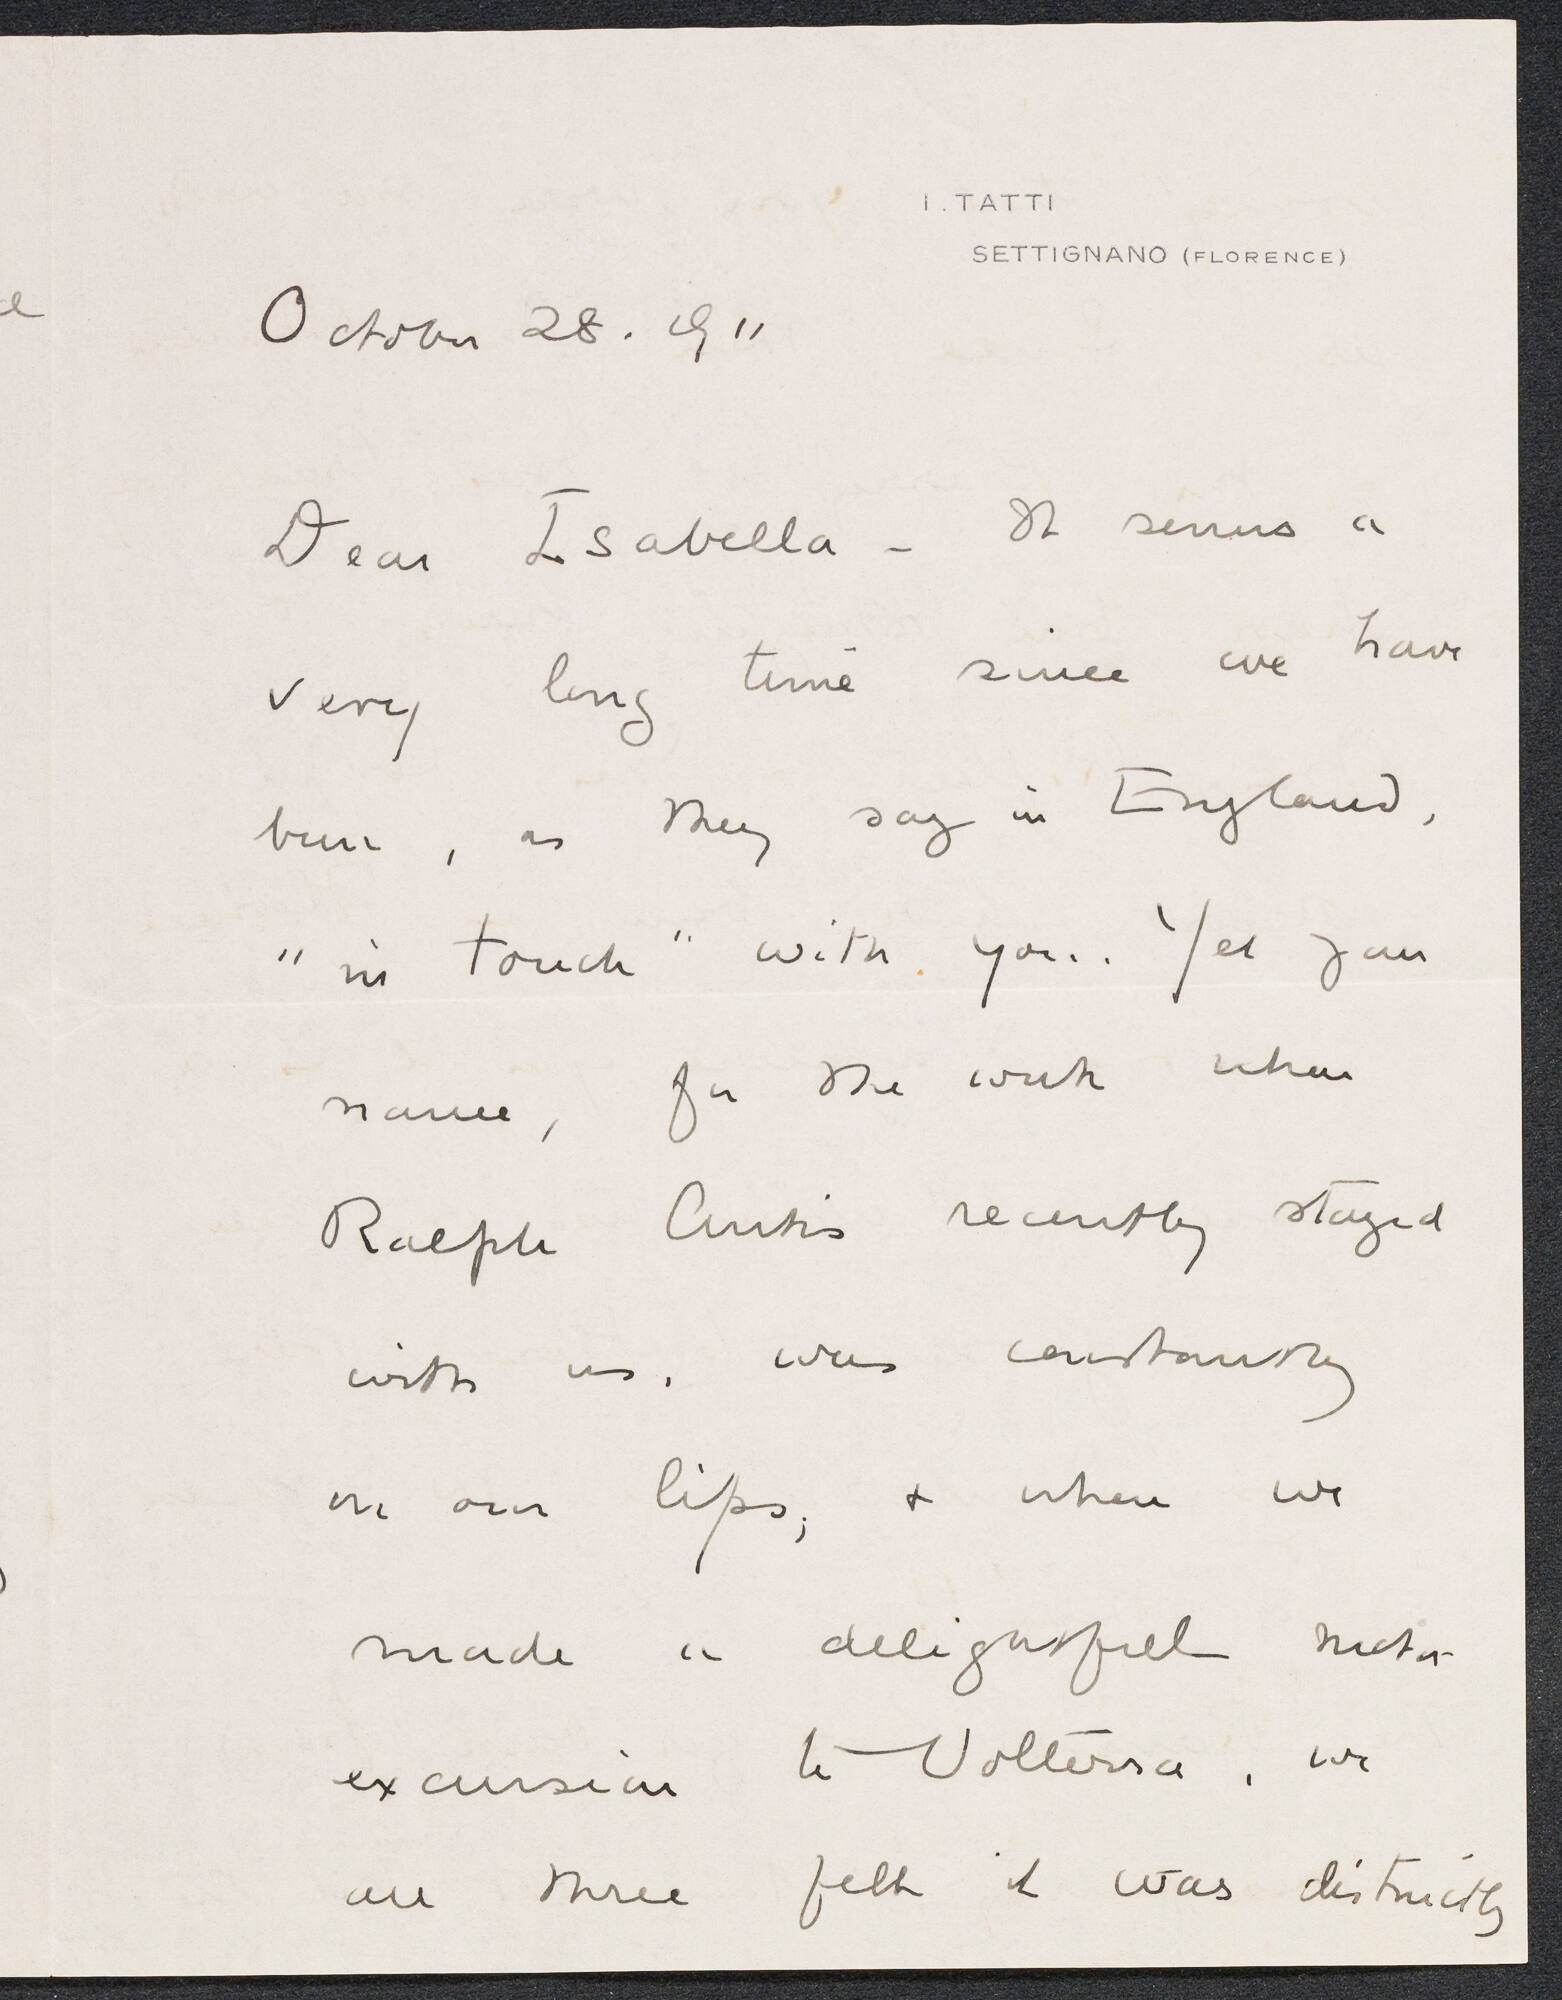 I. TATTI
SETTIGNANO (FLORENCE)
October 28. 1911
Dear Isabella - It seems a
very long time since we have
been, as they say in England,
"in touch" with you. Yet your
name, for the week when
Ralph Curtis recently stayed
with us, was constantly
on our lips; & when we
made a delightful motor
excursion to Volterra, we
all three felt it was distinctly